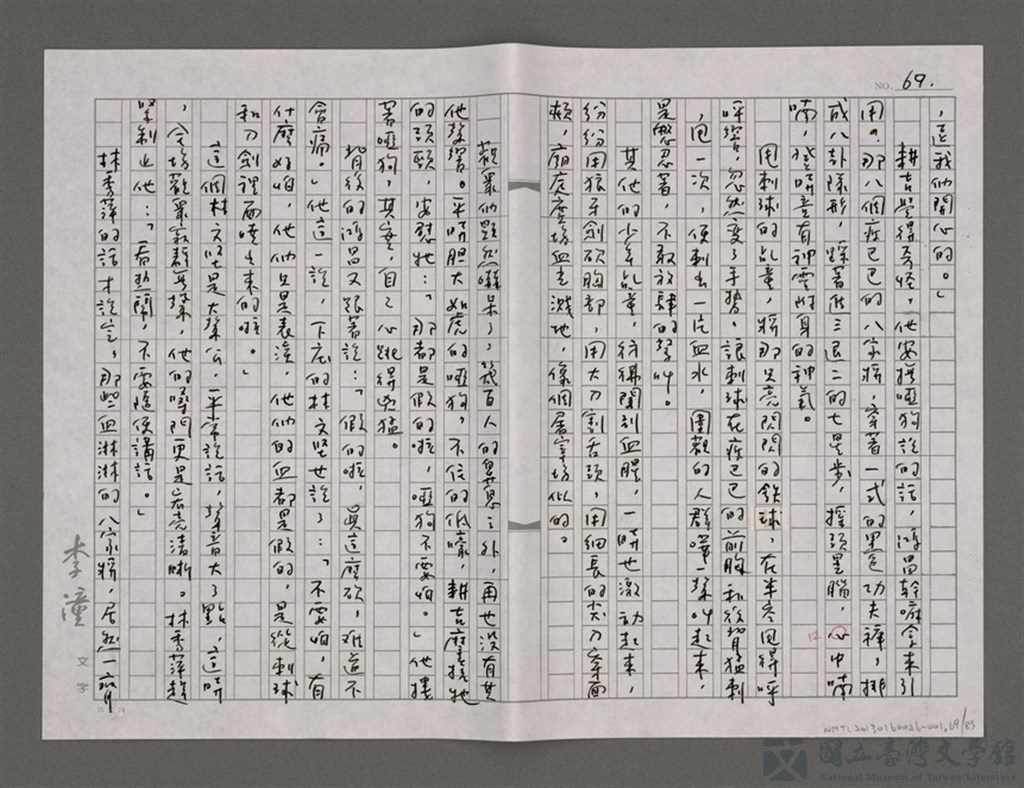 NO. 69.
，逗我們開心的。」
耕吉覺得奇怪，他安撫啞狗說的話，鴻昌幹嘛拿來引
用。那八個疤已巴的八家將，穿著一式的黑色功夫褲，排
成八卦隊形，踩著進三退二的七星步，搖頭晃腦，心中喃
喃，發哼童有神靈附身的神氣。
甩刺球的乩童，將那只亮閃閃的鐵球，在半空甩得呼
呼響，忽然變了手勢，讓刺球在疤已巴的前胸和後背猛刺
，甩一次，便刺出一片血水，圍觀的人群嘩一聲叫起來，
是憋忍著，不敢放肆的聲叫。
其他的少年乩童，彷彿聞到血腥，一時也激動起來，
紛紛用狼牙劍砍胸部，用大刀割舌頭，用細長的尖刀穿面
頰，廟庭廣場血光濺地，像個屠宰場似的。
觀眾們顯然嚇呆了，幾百人的鼻息之外，再也沒有其
他聲響。平時膽大如虎的啞狗，不住的低嚎，耕吉摩挲牠
的頭頸，安慰牠：「那都是假的啦，啞狗不要怕。」他摟
著啞狗，其實，自己心跳得兇猛。
背後的鴻昌又跟著說：「假的啦，真這麼砍，難道不
會痛。」他這一說，下庄的林文堅也說了：「不要怕，有
什麼好怕，他們只是表演，他們的血都是假的，是從刺球
和刀劍裡面噴出來的啦。」
這個林文堅是大聲公，平常說話，聲音大了點，這時
，全場觀眾寂靜無聲，他的嗓門更是宏亮清晰。林秀萍趕
緊制止他：「看熱鬧，不要隨便講話。」
林秀萍的話才說完，那些血淋淋的八家將，居然一齊
李潼
文子
12
NMTL20130160026-001,69/83
國立臺灣文學館
National Museum of Taiwan Literature